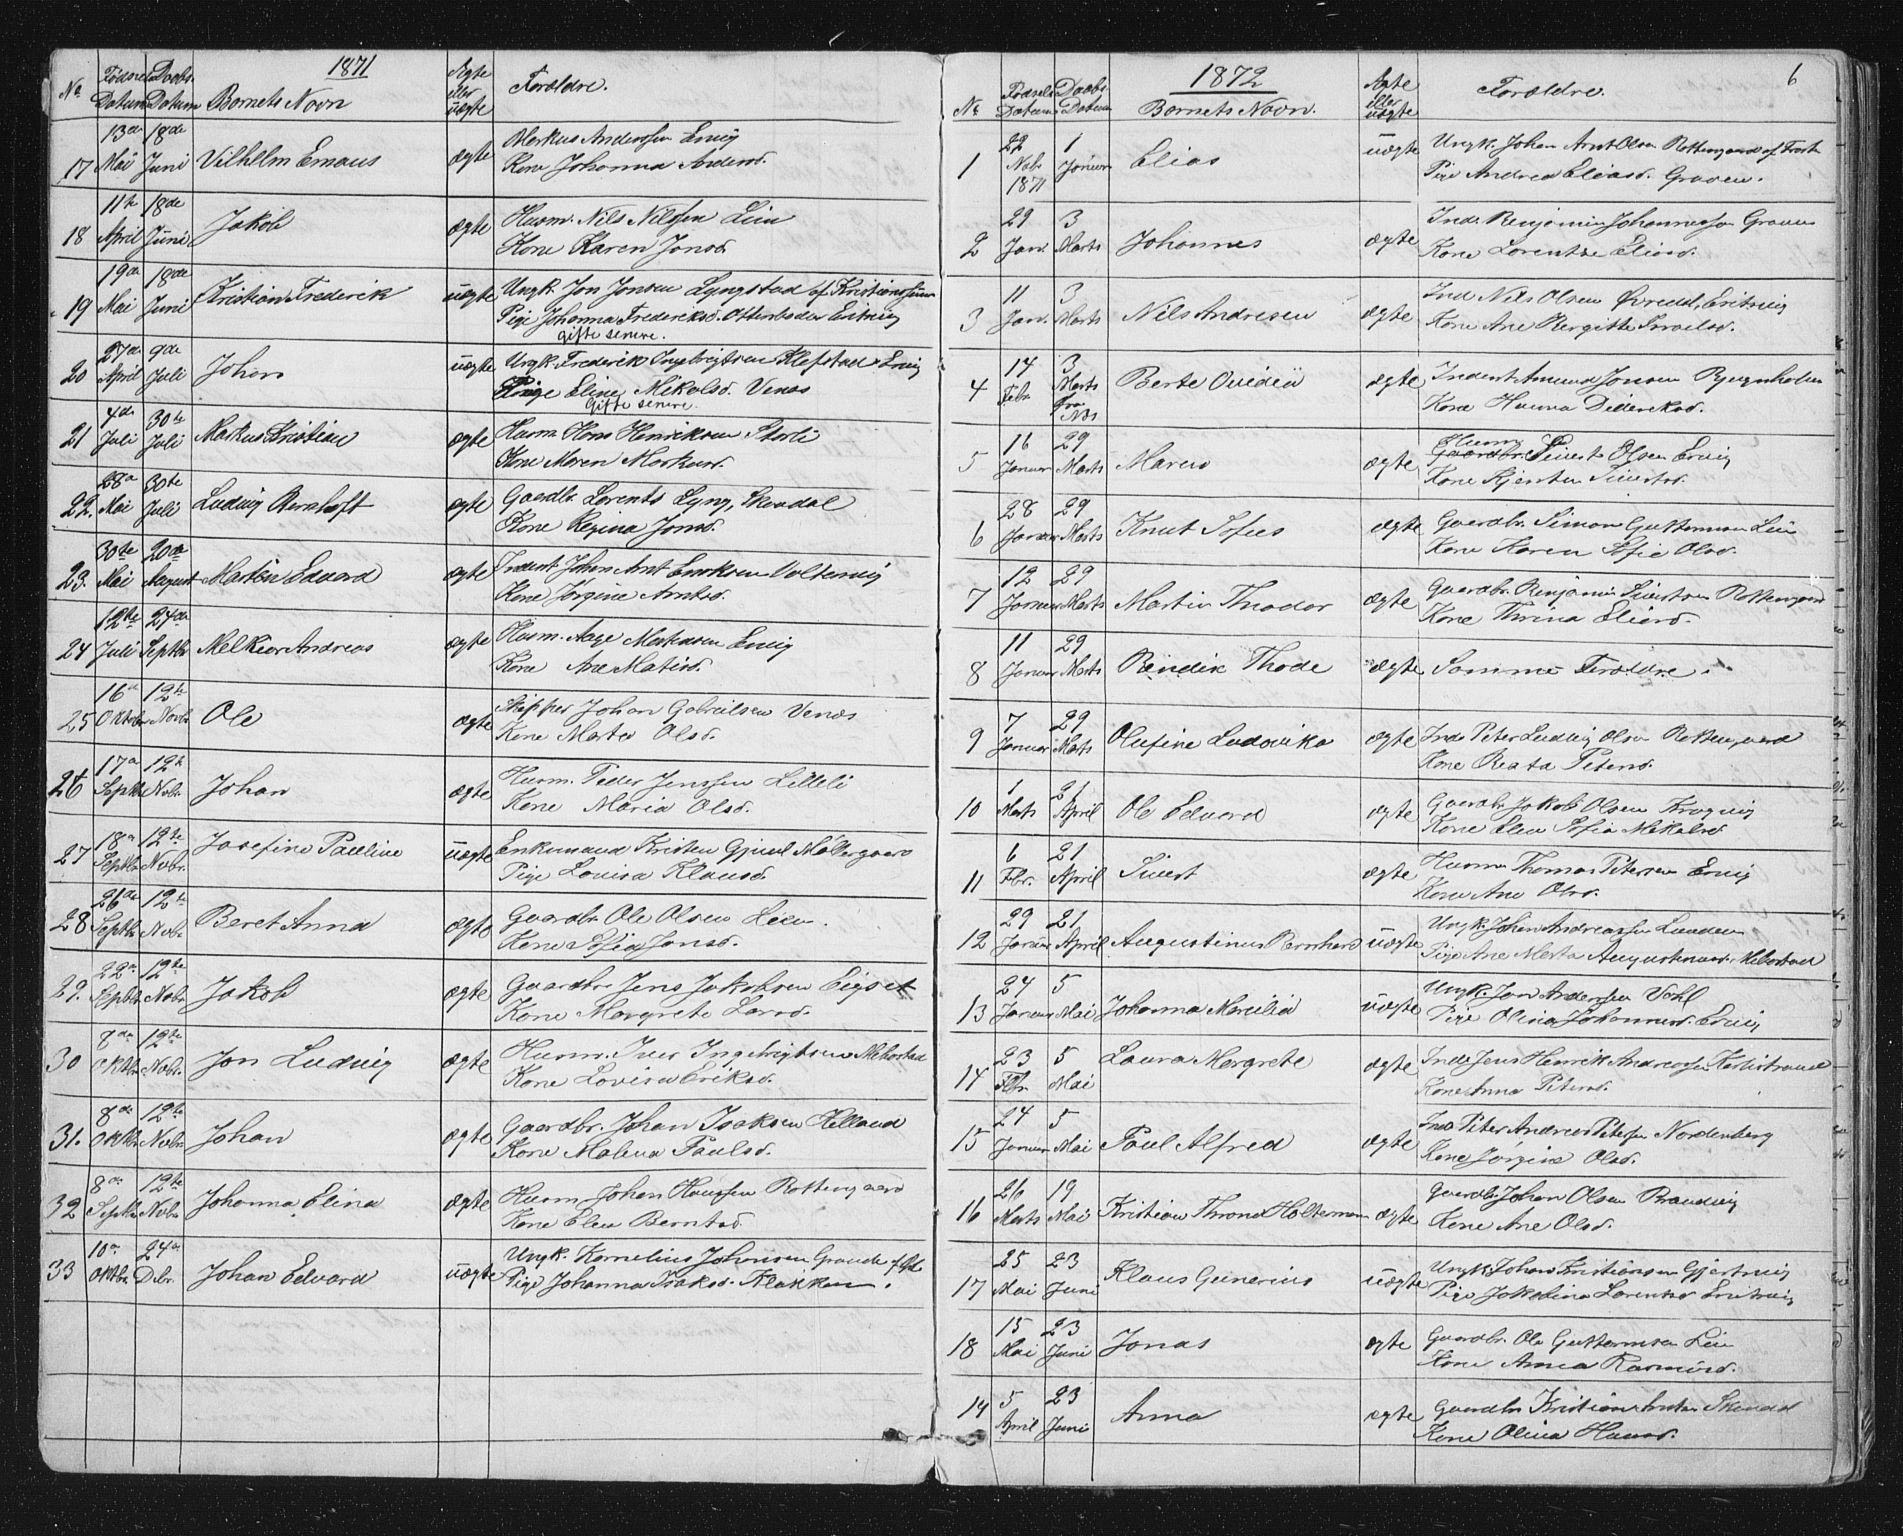 1871
No Fødsels Datum Daabs Datum Barnets Navn Ægte eller uægte Forældre.
17 13de Mai 18de Juni Vilhelm Emaus ægte Markus Anderssen Ervig
Kone Johanna Andersd.
18 11te April 18de Juni Jakob ægte Husm. Nils Nilssen Lien
Kone Karen Jonsd.
19 19de Mai 18de Juni Kristian Frederik uægte Ungk. Jon Jonsen Lyngstad af Kristianssund
Pige Johanna Frederiksd.
Gifte senere.
20 27de April 9de Juli Johan uægte Ungk. Frederik Ingebrigtsen Klefstad Ervig
Pige Eline Mikalsd. Venæs
Gifte senere.
21 4de Juli 30te Juli Markus Kristian ægte Husm. Hans Henriksen Storli
Kone Maren Markusd.
22. 28de Mai 30te Juli Ludvig Bernhoft ægte Gaardbr. Lorents Lyng, Skendal
Kone Regina Jonsd.
23. 30te Mai 20de August Martin Edvard ægte Inderst Johan Arnt Eriksen
Kone Jørgine Arntsd.
24 12te Juli 24de Septbr Melkior Andreas ægte Husm. Aage Markussen Ervig
Kone Ane Matisd.
25 16de Oktobr 12te Novbr Ole ægte Skipper Johan Gabrielsen Venæs
Kone Marta Olsd.
26 17de Septbr 12te Nobr. Johan ægte Husm. Peder Jenssen Lilleli
Kone Maria Olsd.
27 18de Septbr 12te Nobr. Josefine Pauline uægte Enkemand Kristen
Pige Lovisa Klausd.
28 26de Septbr 12te Nobr Beret Anna ægte Gaardbr. Ole Olsen Lien.
Kone Sofia Jonsd.
29. 22de Septbr 12te Nobr Jakob ægte Gaardbr Jens Jakobsen
Kone Margrete Larsd.
30 8de Oktbr 12te Nobr. Jon Ludvig ægte Husm. Iver Ingebrigtsen Mebostad
Kone Lovisa Eriksd.
31. 8de Oktbr 12te Nobr Johan ægte Gaardbr. Johan Isaksen Helland
Kone Malena Paulsd.
32 8de Septbr 12te Nobr Johanna Elina ægte Husm. Johan Hanssen Rottengaard
Kone Elen Berntsd.
33 10de Oktbr 24de Debr. Johan Edvard uægte Ungk. Kornelius Johansen Grande
Pige Johanna Isaksd. Flakken.
6
1872
No Fødsels Datum Daabs Datum Barnets Navn. Ægte eller uægte Forældre.
1 22 Nobr 1871 1 Januar Elias uægte Ungk. Johan Arnt Olsen Rottengaard
Pige Andrea Eliasd. Graven.
2 29 Jan. 3 Marts Johannes ægte Inds Benjamin Johannessen Graven
Kone Lorentse Eliasd.
3 11 Jan. 3 Marts Nils Andresen ægte Ind Nils Olsen
Kone Ane Bergitte
4 14 Febr. 3 Marts Berte Ovidia ægte Inderst Amund Jonsen
Kone Hanna Dideriksd.
5 16 Januar 29 Marts Maren ægte Husm Sivert Olsen Ervig
Kone Kjersten Sivertsd.
6 28 Januar 29 Marts Knut Tofus ægte Gaardbr. Simon Guttormsen Lien
Kone Karen Sofie Olsd.
7 12 Januar 29 Marts Martin Thodor ægte Gaardbr. Benjamin Sivertsen Rottengaard
Kone Thrina Eliasd.
8 11 Januar 29 Marts Bendix Thode ægte Samme Forældre
9 7 Januar 29 Marts Olufine Ludovika ægte Inds Peter Ludvig Olsen Rottengaard
Kone Beata Petersd.
10 1 Marts 21 April Ole Edvard ægte Gaardbr Jakob Olsen Krogvig
Kone Elen Sofia Mikalsd
11 6 Febr. 21 April Sivert ægte Husm Thomas Petersen Ervig
Kone Ane Olsd.
12 29 Januar 21 April Augustinus Bernhard uægte Ungk. Johan Andreassen Lunden
Pige Ane Marta Augustinusd. Mebostad
13 24 Januar 5 Mai Johanna Marselia uægte Ungk. Jon Anderssen Vahl
Pige Olina Johannesd. Ervig
14 23 Febr. 5 Mai Laura Margrete ægte Inds Jens Henrik Andreassen
Kone Anna Petersd.
15 24 Januar 5 Mai Paul Alfred ægte Inds Peter Andreas Petersen Nordenberg
Kone Jørgine Olsd.
16 26 Marts 19 Mai Kristian Thrond Holterman ægte Gaardbr. Johan Olsen Brandvig
Kone Ane Olsd.
17 25 Mai 23 Juni Klaus Gunerius uægte Ungk. Johan Kristiansen
Pige Jakobina Lorentsd
18 15 Mai 23 Juni Jonas ægte Gaardbr. Ole Guttormsen Lien
Kone Anna Rasmusd.
19 5 April 23 Juni Anna ægte Gaardbr Kristian Arntsen Skendal
Kone Olina Hansd.